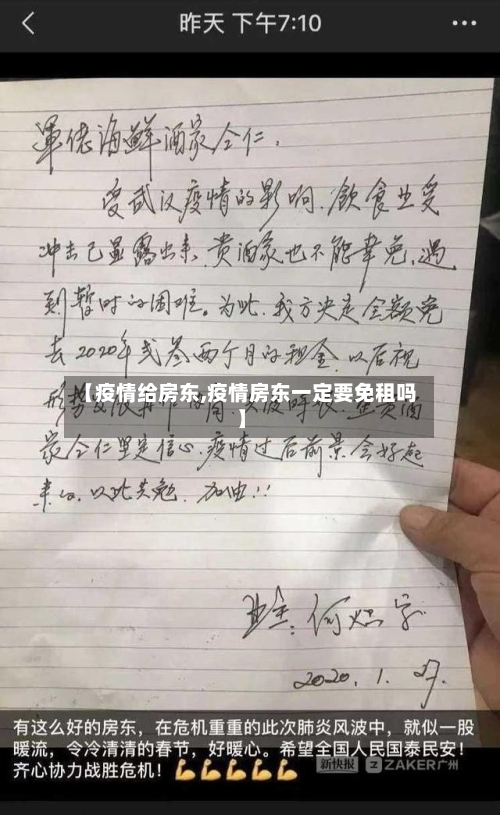 昨天 下午7:10
軍佬海鮮酒家仝仁:
受武汉疫情的影响,飲食业受
冲击已显露出来,贵酒家也不能幸免,遇
到暂时的困难。为此,我方决定全额免
去2020年弍叁两个月的租金,以后视
【疫情给房东,疫情房东一定要免租吗
】
家仝仁坚定信心,疫情过后前景会好起
来的,以此共勉,加油!!
业主:何
2020.1.27.
有这么好的房东,在危机重重的此次肺炎风波中,就似一股
暖流,令冷清清的春节,好暖心。希望全国人民国泰民安!
齐心协力战胜危机!💪💪💪💪💪
新快报 ZAKER广州